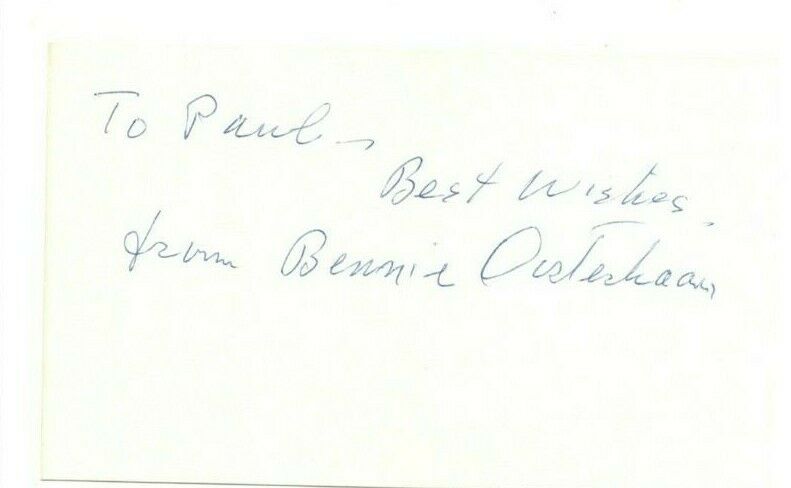 To Paul -
Best Wishes.
from Bennie Oosterbaan